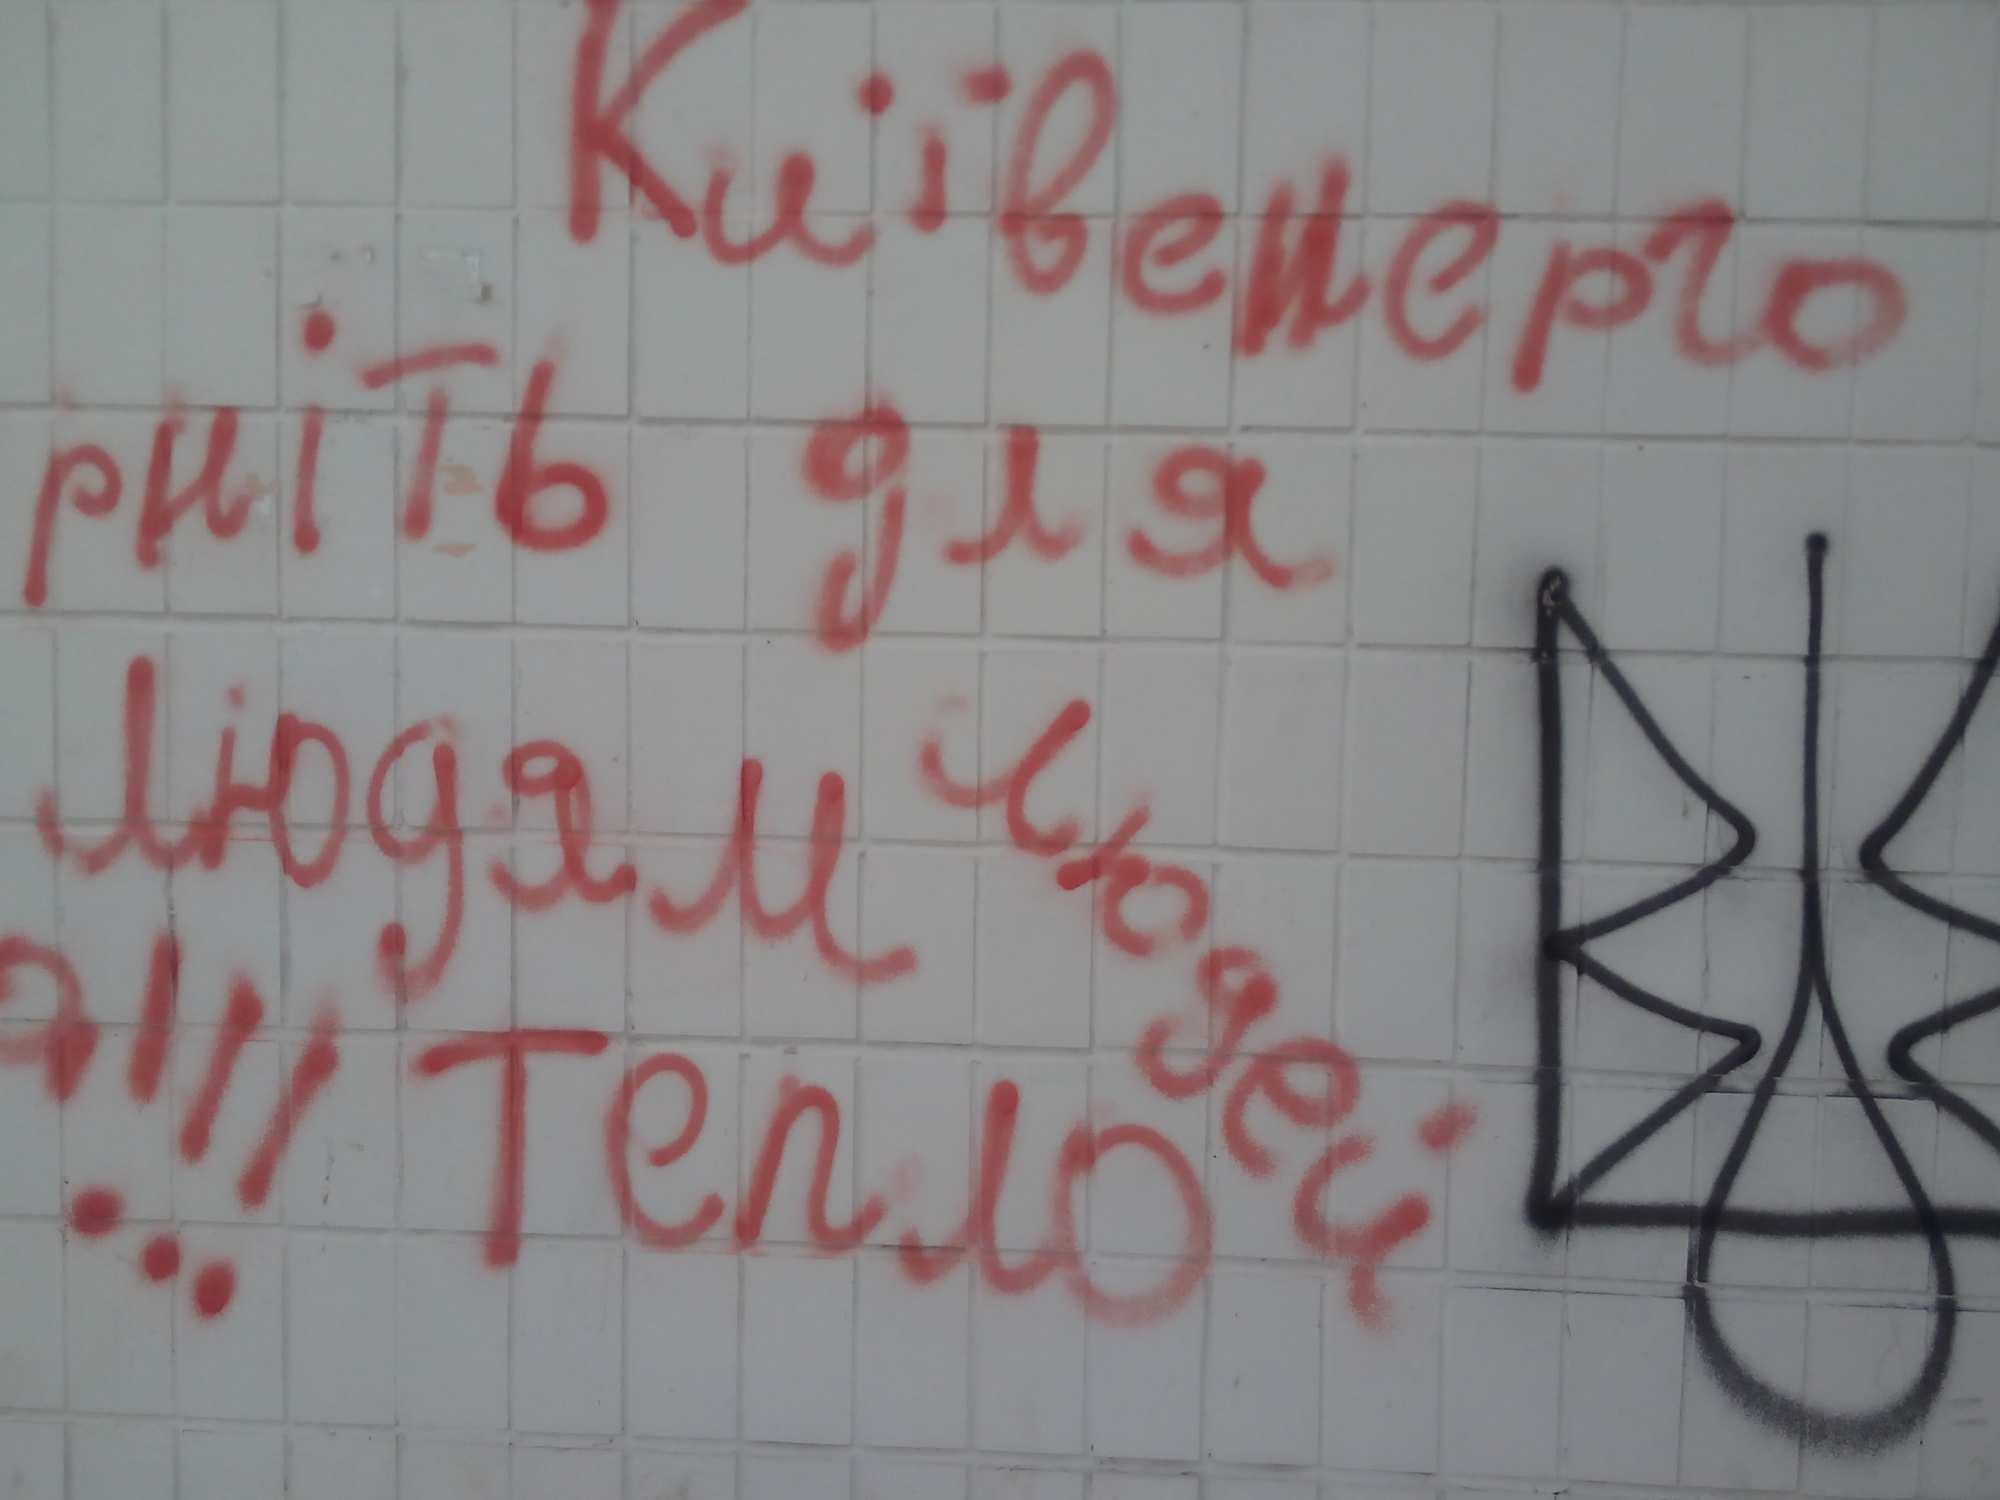 Київенерго
рніть для
людям людей
а!!! Тепло